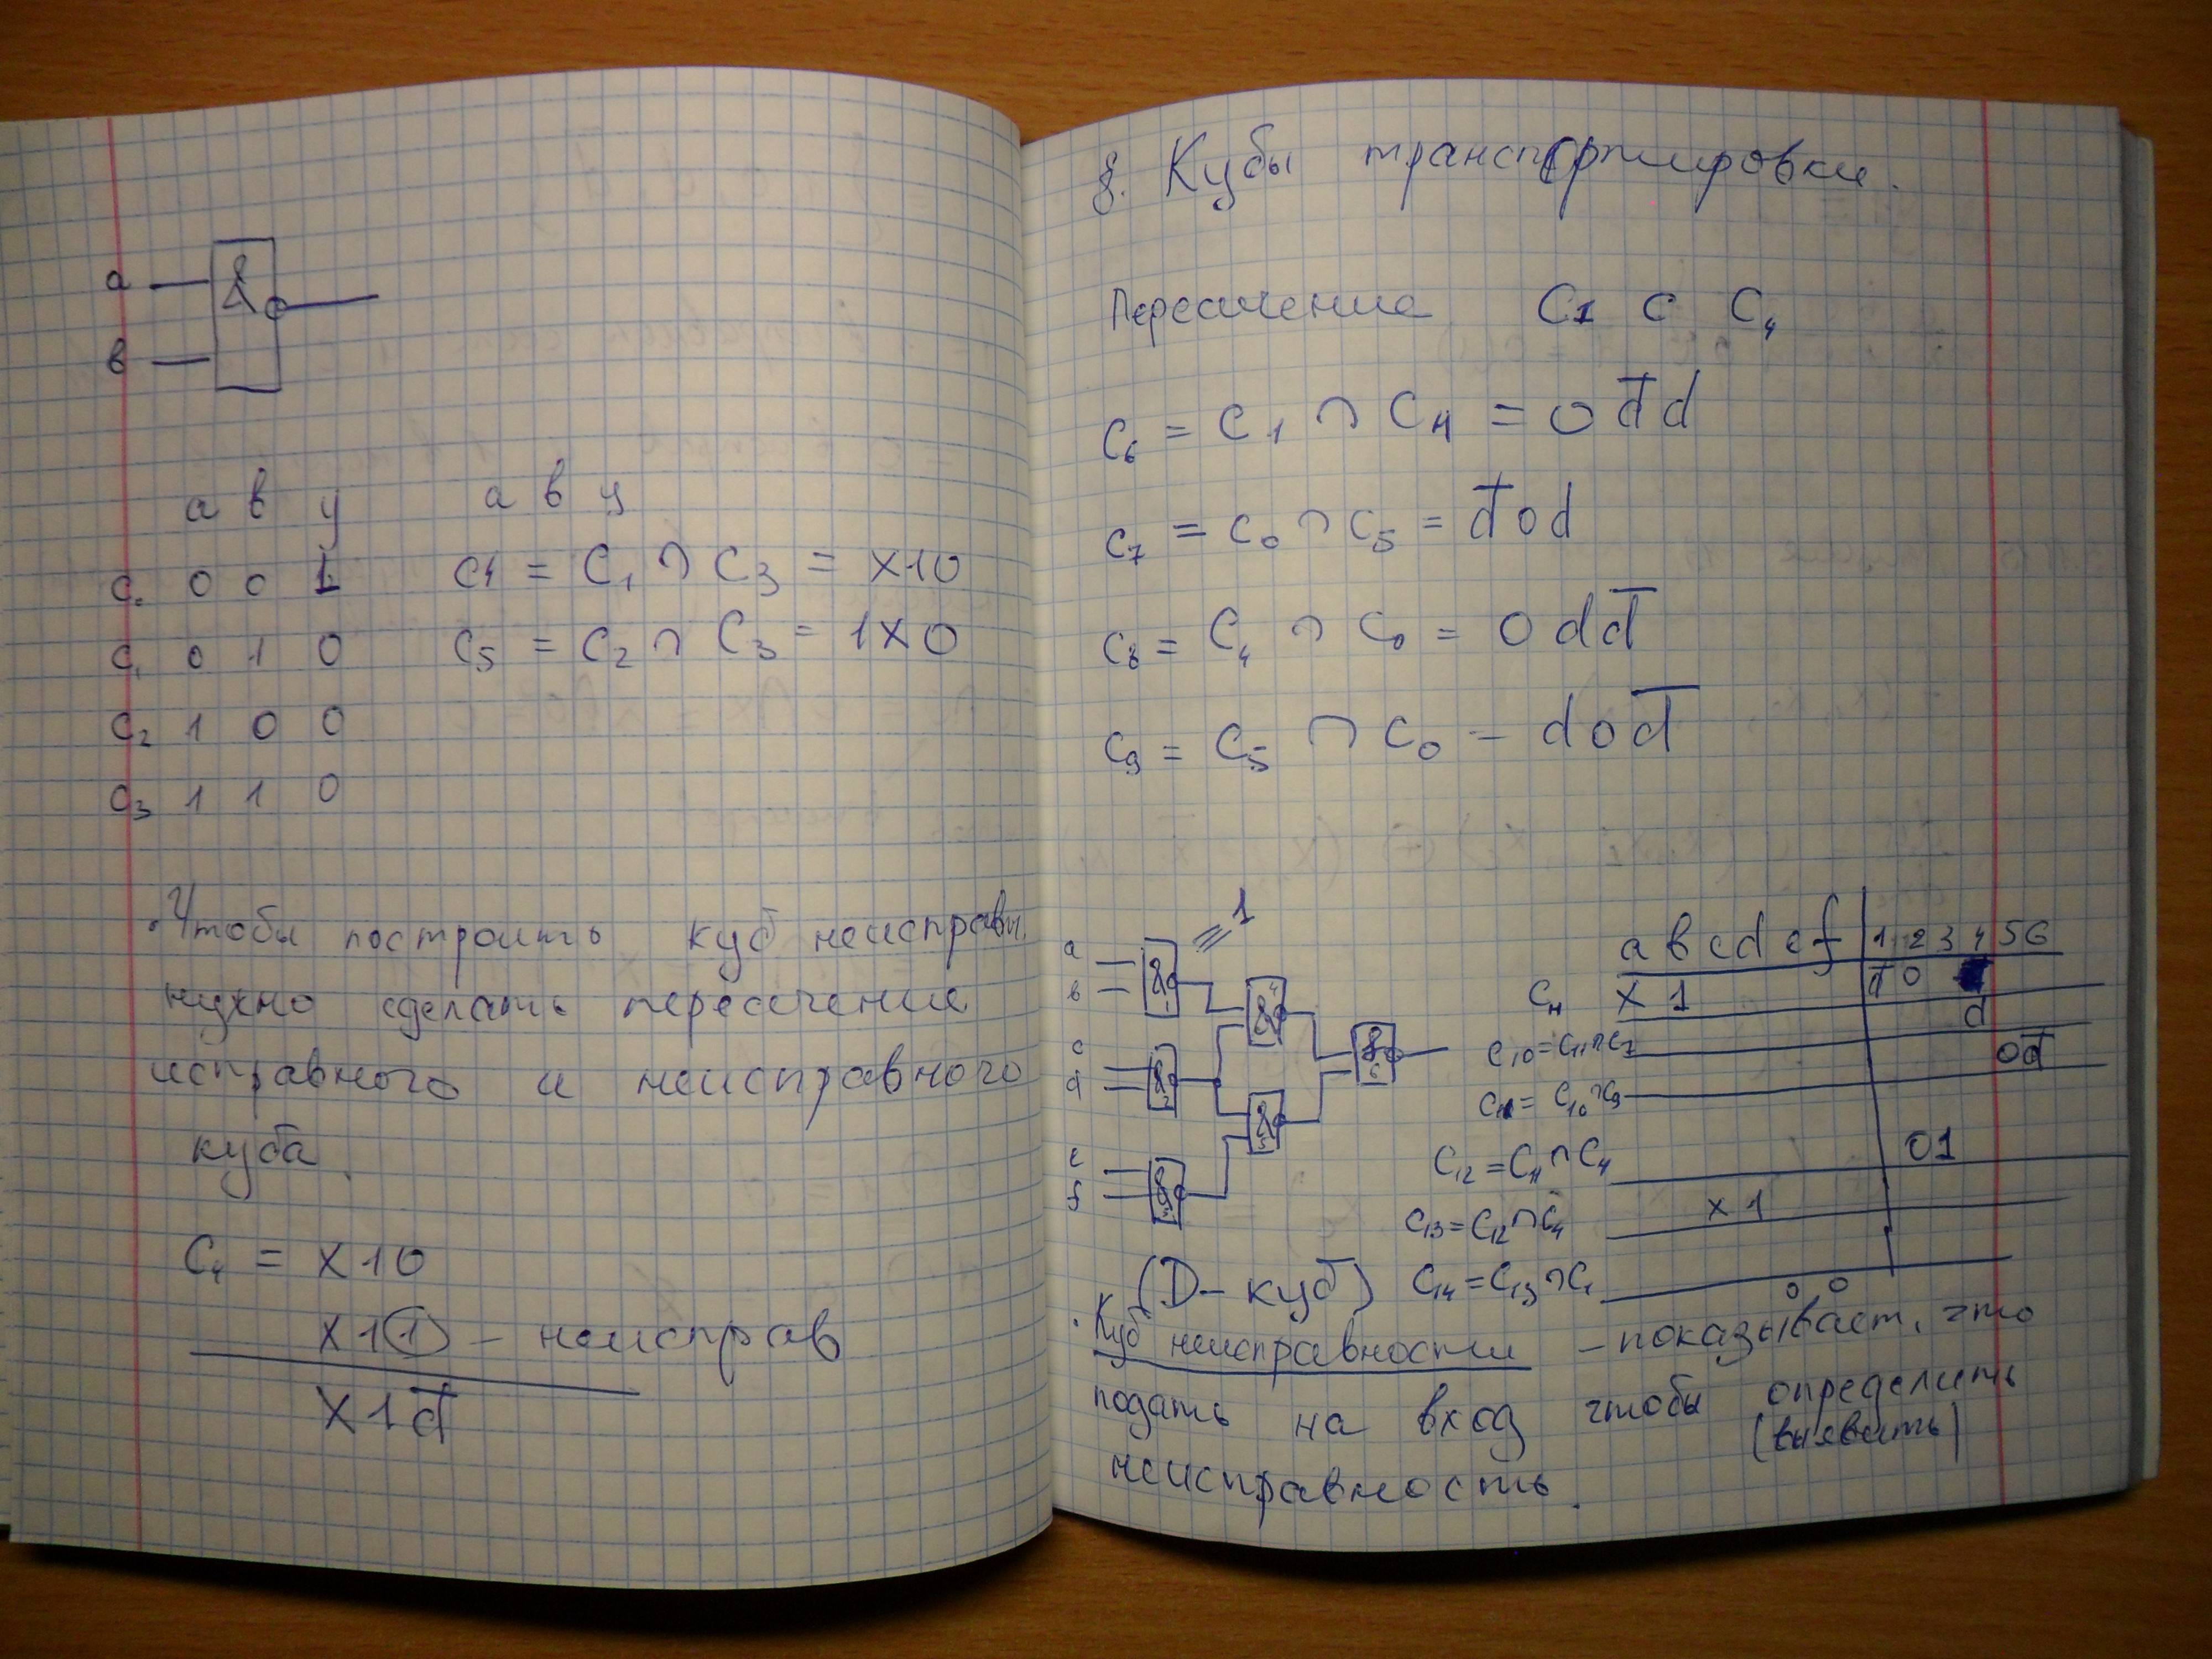 a
&
в
а в у
а в у
C₀ 0 0 1
C4 = C₁ ∩ C₃ = X10
C₁ 0 1 0
C₅ = C₂ ∩ C₃ = 1X0
C₂ 1 0 0
C₃ 1 1 0
· Чтобы построить куб неисправн.
нужно сделать пересечение
исправного и неисправного
куба.
C₄ = X10
X1① – неисправ
X1d̅
§. Кубы транспортировки.
Пересечение C1 с C₄
C₆ = C₁ ∩ C₄ = 0d̅d
C₇ = C₀ ∩ C₅ = d̅0d
C₈ = C₄ ∩ C₀ = 0dd̅
C₉ = C₅ ∩ C₀ – d0d̅
1
a
в
c
d
e
f
& 1
& 2
& 3
& 4
& 5
& 6
a b c d e f | 1 2 3 4 5 6
Cн X 1 d̅ 0
d
C₁₀ = C₁₁ ∩ C₇
0 d̅
C₁₁ = C₁₀ ∩ C₉
C₁₂ = C₁₁ ∩ C₄ 0 1
C₁₃ = C₁₂ ∩ C₄ X 1
(D – куб) C₁₄ = C₁₃ ∩ C₁
0 0
· Куб неисправности – показывает, что
подать на вход чтобы определить
(выявить)
неисправность.